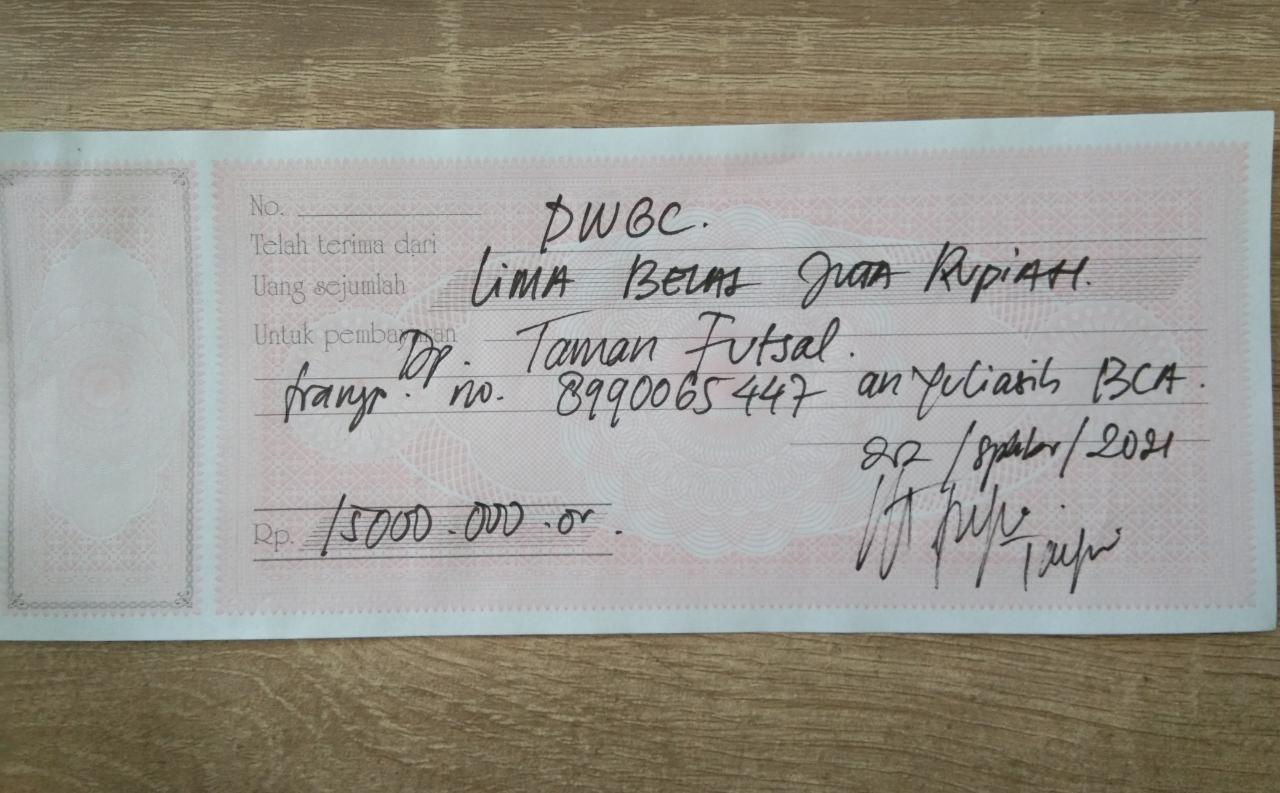 No.
Telah terima dari DWBC.
Uang sejumlah Lima Belas Juta Rupiah.
Untuk pembayaran Dp. Taman Futsal.
no. 8990065447 an Yuliasih BCA.
/2021
Rp. 15000.000.